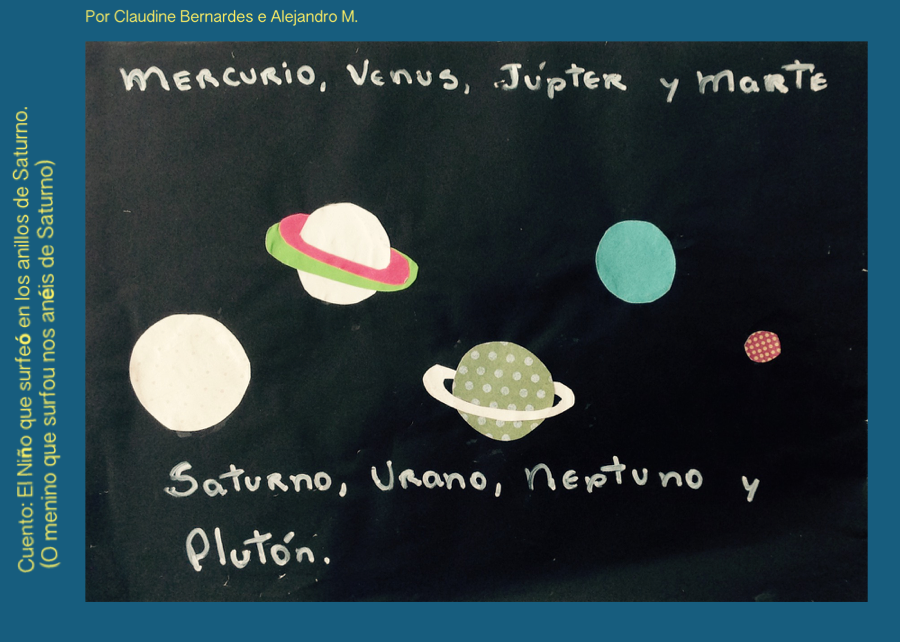 Por Claudine Bernardes e Alejandro M.
MERCURIO, VENUS, JÚPTER y MARTE
Saturno, Urano, Neptuno y
Plutón.
Cuento: El Niño que surfeó en los anillos de Saturno.
(O menino que surfou nos anéis de Saturno)